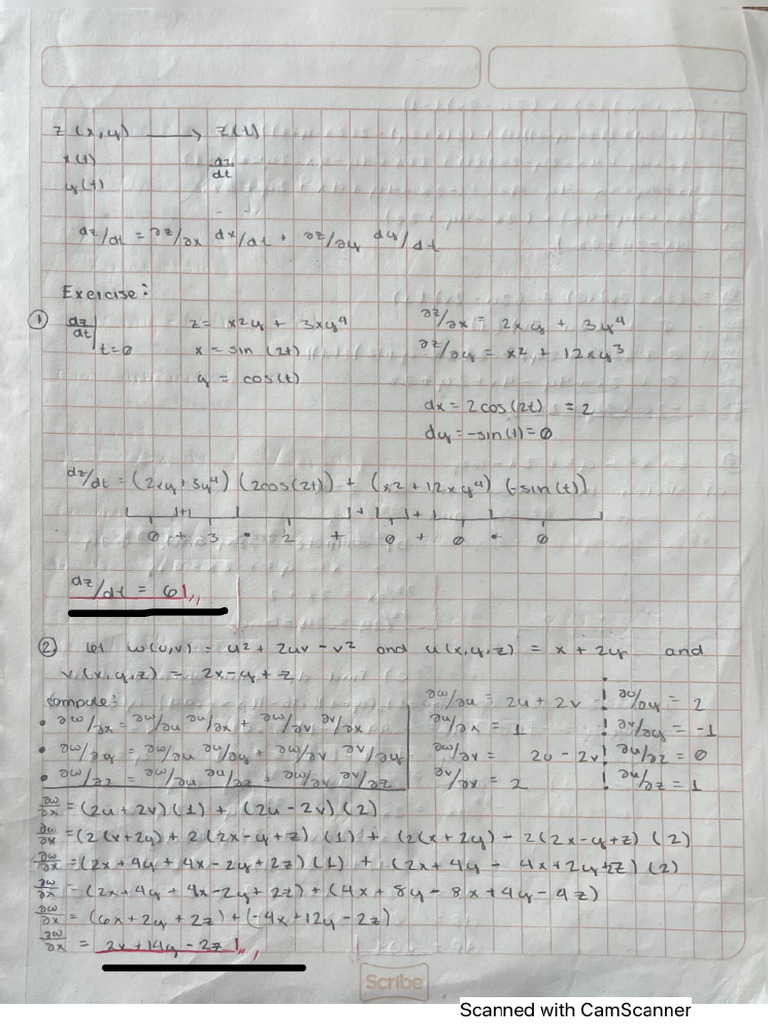 z (x,y) ⟶ z(t)
x(t) dz/dt
y(t)
dz/dt = ∂z/∂x dx/dt + ∂z/∂y dy/dt
Exercise:
① dz/dt|t=0 z = x2y + 3xy⁴ ∂z/∂x = 2xy + 3y⁴
x = sin (2t) ∂z/∂y = x2 + 12xy³
y = cos(t)
dx = 2cos(2t) = 2
dy = -sin(t) = 0
dz/dt = (2xy+3y⁴) (2cos(2t)) + (x2 + 12xy⁴) (-sin(t))
0 + 3 · 2 + 0 + 0 · 0
dz/dt = 6
② Let w(u,v) = u² + 2uv - v² and u(x,y,z) = x + 2y and
v(x,y,z) = 2x-y+z
compute: ∂w/∂u = 2u + 2v ∂u/∂y = 2
• ∂w/∂x = ∂w/∂u ∂u/∂x + ∂w/∂v ∂v/∂x ∂u/∂x = 1 ∂v/∂y = -1
• ∂w/∂y = ∂w/∂u ∂u/∂y + ∂w/∂v ∂v/∂y ∂w/∂v = 2u - 2v ∂u/∂z = 0
• ∂w/∂z = ∂w/∂u ∂u/∂z + ∂w/∂v ∂v/∂z ∂v/∂x = 2 ∂v/∂z = 1
∂w/∂x = (2u + 2v) (1) + (2u - 2v) (2)
∂w/∂x = (2(x+2y) + 2(2x-y+z) (1) + (2(x+2y) - 2(2x-y+z) (2)
∂w/∂x = (2x + 4y + 4x - 2y + 2z) (1) + (2x + 4y - 4x + 2y + 2z) (2)
∂w/∂x = (2x + 4y + 4x - 2y + 2z) + (4x + 8y - 8x + 4y - 4z)
∂w/∂x = (6x + 2y + 2z) + (-4x + 12y - 2z)
∂w/∂x = 2x + 14y - 2z
Scribe
Scanned with CamScanner